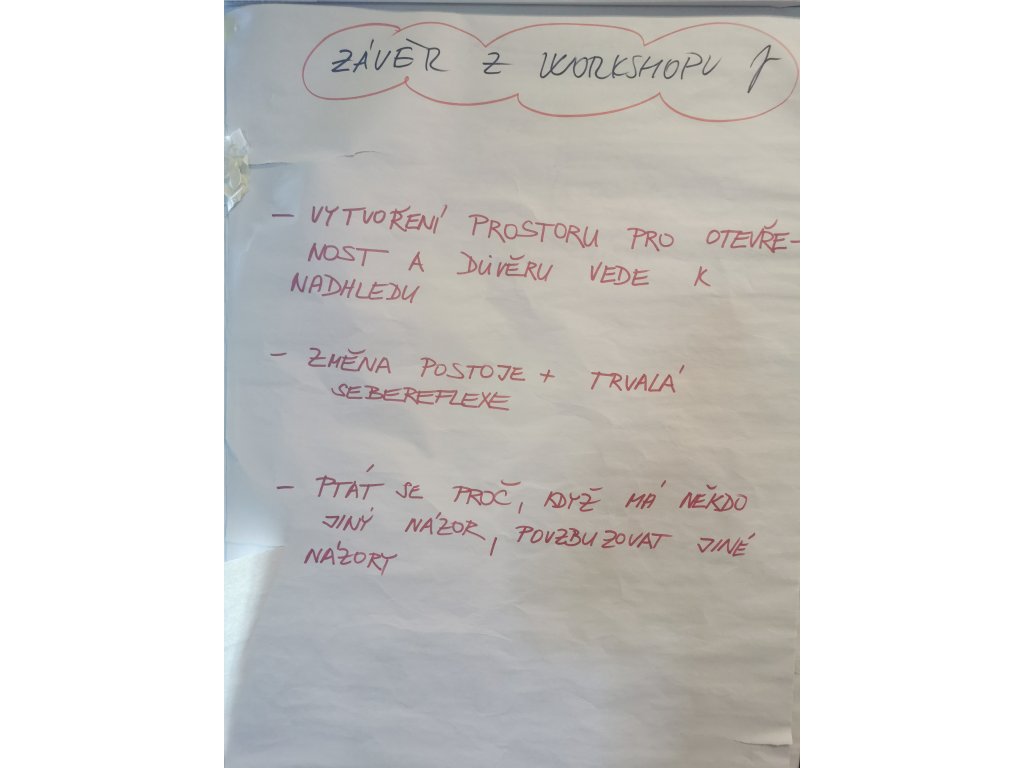 ZÁVĚR Z WORKSHOPU
- VYTVOŘENÍ PROSTORU PRO OTEVŘE-
NOST A DŮVĚRU VEDE K
NADHLEDU
- ZMĚNA POSTOJE + TRVALÁ
SEBEREFLEXE
- PTÁT SE PROČ, KDYŽ MÁ NĚKDO
JINÝ NÁZOR, POVZBUZOVAT JINÉ
NÁZORY